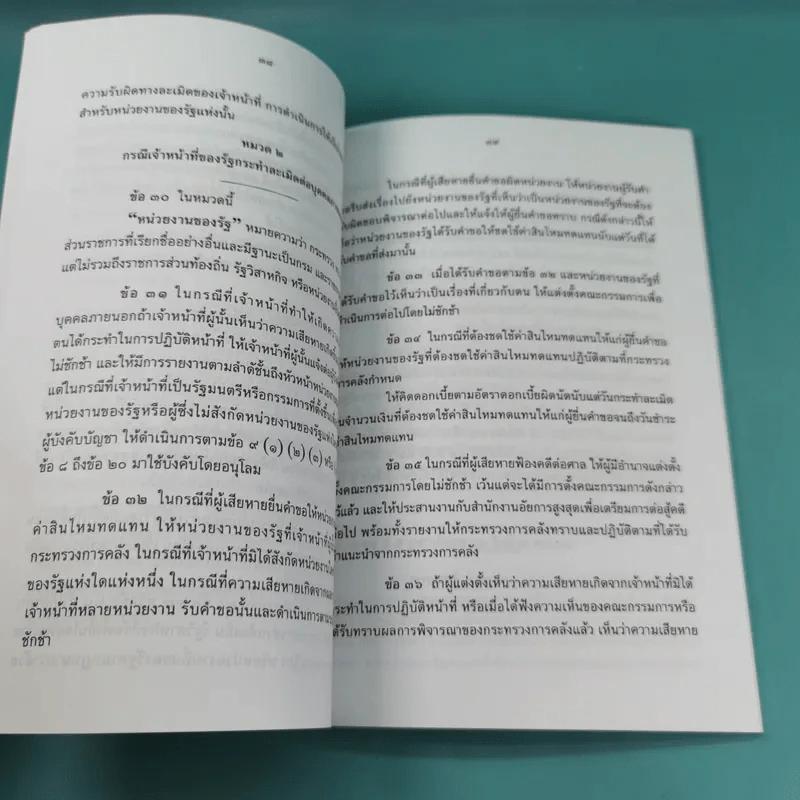 ๓๘
ความรับผิดทางละเมิดของเจ้าหน้าที่ การดำเนินการให้เป็น
สำหรับหน่วยงานของรัฐแห่งนั้น
หมวด ๒
กรณีเจ้าหน้าที่ของรัฐกระทำละเมิดต่อบุคคล
ข้อ ๓๐ ในหมวดนี้
“หน่วยงานของรัฐ” หมายความว่า กระทรวง
ส่วนราชการที่เรียกชื่ออย่างอื่นและมีฐานะเป็นกรม และ
แต่ไม่รวมถึงราชการส่วนท้องถิ่น รัฐวิสาหกิจ หรือหน่วยงาน
ข้อ ๓๑ ในกรณีที่เจ้าหน้าที่ทำให้เกิดความ
บุคคลภายนอกถ้าเจ้าหน้าที่ผู้นั้นเห็นว่าความเสียหายเกิด
ตนได้กระทำในการปฏิบัติหน้าที่ ให้เจ้าหน้าที่ผู้นั้นแจ้ง
ไม่ชักช้า และให้มีการรายงานตามลำดับชั้นถึงหัวหน้าหน่วยงาน
แต่ในกรณีที่เจ้าหน้าที่เป็นรัฐมนตรีหรือกรรมการที่ตั้งขึ้น
หน่วยงานของรัฐหรือผู้ซึ่งไม่สังกัดหน่วยงานของรัฐแห่งใด
ผู้บังคับบัญชา ให้ดำเนินการตามข้อ ๙ (๑) (๒) (๓) หรือ
ข้อ ๘ ถึงข้อ ๒๐ มาใช้บังคับโดยอนุโลม
ข้อ ๓๒ ในกรณีที่ผู้เสียหายยื่นคำขอให้หน่วย
ค่าสินไหมทดแทน ให้หน่วยงานของรัฐที่เจ้าหน้าที่ผู้
กระทรวงการคลัง ในกรณีที่เจ้าหน้าที่มิได้สังกัดหน่วยงาน
ของรัฐแห่งใดแห่งหนึ่ง ในกรณีที่ความเสียหายเกิดจาก
เจ้าหน้าที่หลายหน่วยงาน รับคำขอนั้นและดำเนินการตาม
ชักช้า
๓๙
ในกรณีที่ผู้เสียหายยื่นคำขอผิดหน่วยงาน ให้หน่วยงานผู้รับคำ
รีบส่งเรื่องไปยังหน่วยงานของรัฐที่เห็นว่าเป็นหน่วยงานของรัฐที่จะต้อง
รับผิดชอบพิจารณาต่อไปและให้แจ้งให้ผู้ยื่นคำขอทราบ กรณีดังกล่าวนี้ให้
ถือว่าหน่วยงานของรัฐได้รับคำขอให้ชดใช้ค่าสินไหมทดแทนนับแต่วันที่ได้
รับคำขอที่ส่งมานั้น
ข้อ ๓๓ เมื่อได้รับคำขอตามข้อ ๓๒ และหน่วยงานของรัฐที่
ได้รับคำขอไว้เห็นว่าเป็นเรื่องที่เกี่ยวกับตน ให้แต่งตั้งคณะกรรมการเพื่อ
ดำเนินการต่อไปโดยไม่ชักช้า
ข้อ ๓๔ ในกรณีที่ต้องชดใช้ค่าสินไหมทดแทนให้แก่ผู้ยื่นคำขอ
ให้หน่วยงานของรัฐที่ต้องชดใช้ค่าสินไหมทดแทนปฏิบัติตามที่กระทรวง
การคลังกำหนด
ให้คิดดอกเบี้ยตามอัตราดอกเบี้ยผิดนัดนับแต่วันกระทำละเมิด
จำนวนเงินที่ต้องชดใช้ค่าสินไหมทดแทนให้แก่ผู้ยื่นคำขอจนถึงวันชำระ
ค่าสินไหมทดแทน
ข้อ ๓๕ ในกรณีที่ผู้เสียหายฟ้องคดีต่อศาล ให้ผู้มีอำนาจแต่งตั้ง
ตั้งคณะกรรมการโดยไม่ชักช้า เว้นแต่จะได้มีการตั้งคณะกรรมการดังกล่าว
ไว้แล้ว และให้ประสานงานกับสำนักงานอัยการสูงสุดเพื่อเตรียมการต่อสู้คดี
ต่อไป พร้อมทั้งรายงานให้กระทรวงการคลังทราบและปฏิบัติตามที่ได้รับ
คำแนะนำจากกระทรวงการคลัง
ข้อ ๓๖ ถ้าผู้แต่งตั้งเห็นว่าความเสียหายเกิดจากเจ้าหน้าที่มิได้
กระทำในการปฏิบัติหน้าที่ หรือเมื่อได้ฟังความเห็นของคณะกรรมการหรือ
ได้รับทราบผลการพิจารณาของกระทรวงการคลังแล้ว เห็นว่าความเสียหาย